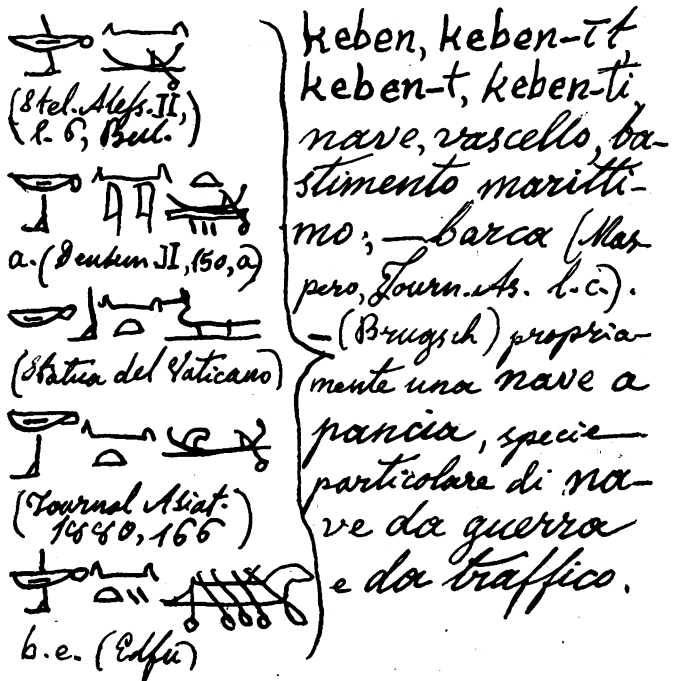 (Stel. Aless. II,
l. 6,
a. (Denkm. II, 150, a)
(Statua del Vaticano)
(Journal Asiat.
1880, 166)
b.e. (Edfu)
keben, keben-tt,
keben-t, keben-ti,
nave, vascello, ba-
stimento maritti-
mo; — barca (Mas
pero, Journ. As. l.c.).
— (Brugsch) propria-
mente una nave a
pancia, specie
particolare di na-
ve da guerra
e da traffico.